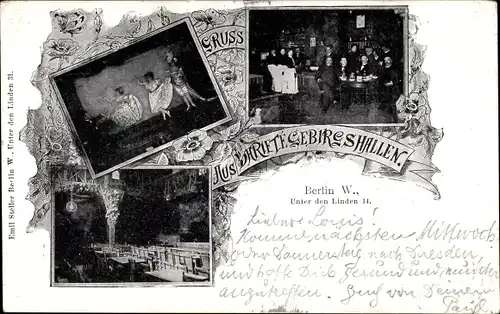 GRUSS
AUS VARIETE GEBIRGSHALLEN.
Berlin W.,
Unter den Linden 14.
Emil Steller Berlin W., Unter den Linden 31.
Liebster Louis!
Komme nächsten Mittwoch
oder Donnerstag nach Dresden,
und hoffe Dich gesund und munter
anzutreffen. von Deinem
Paul